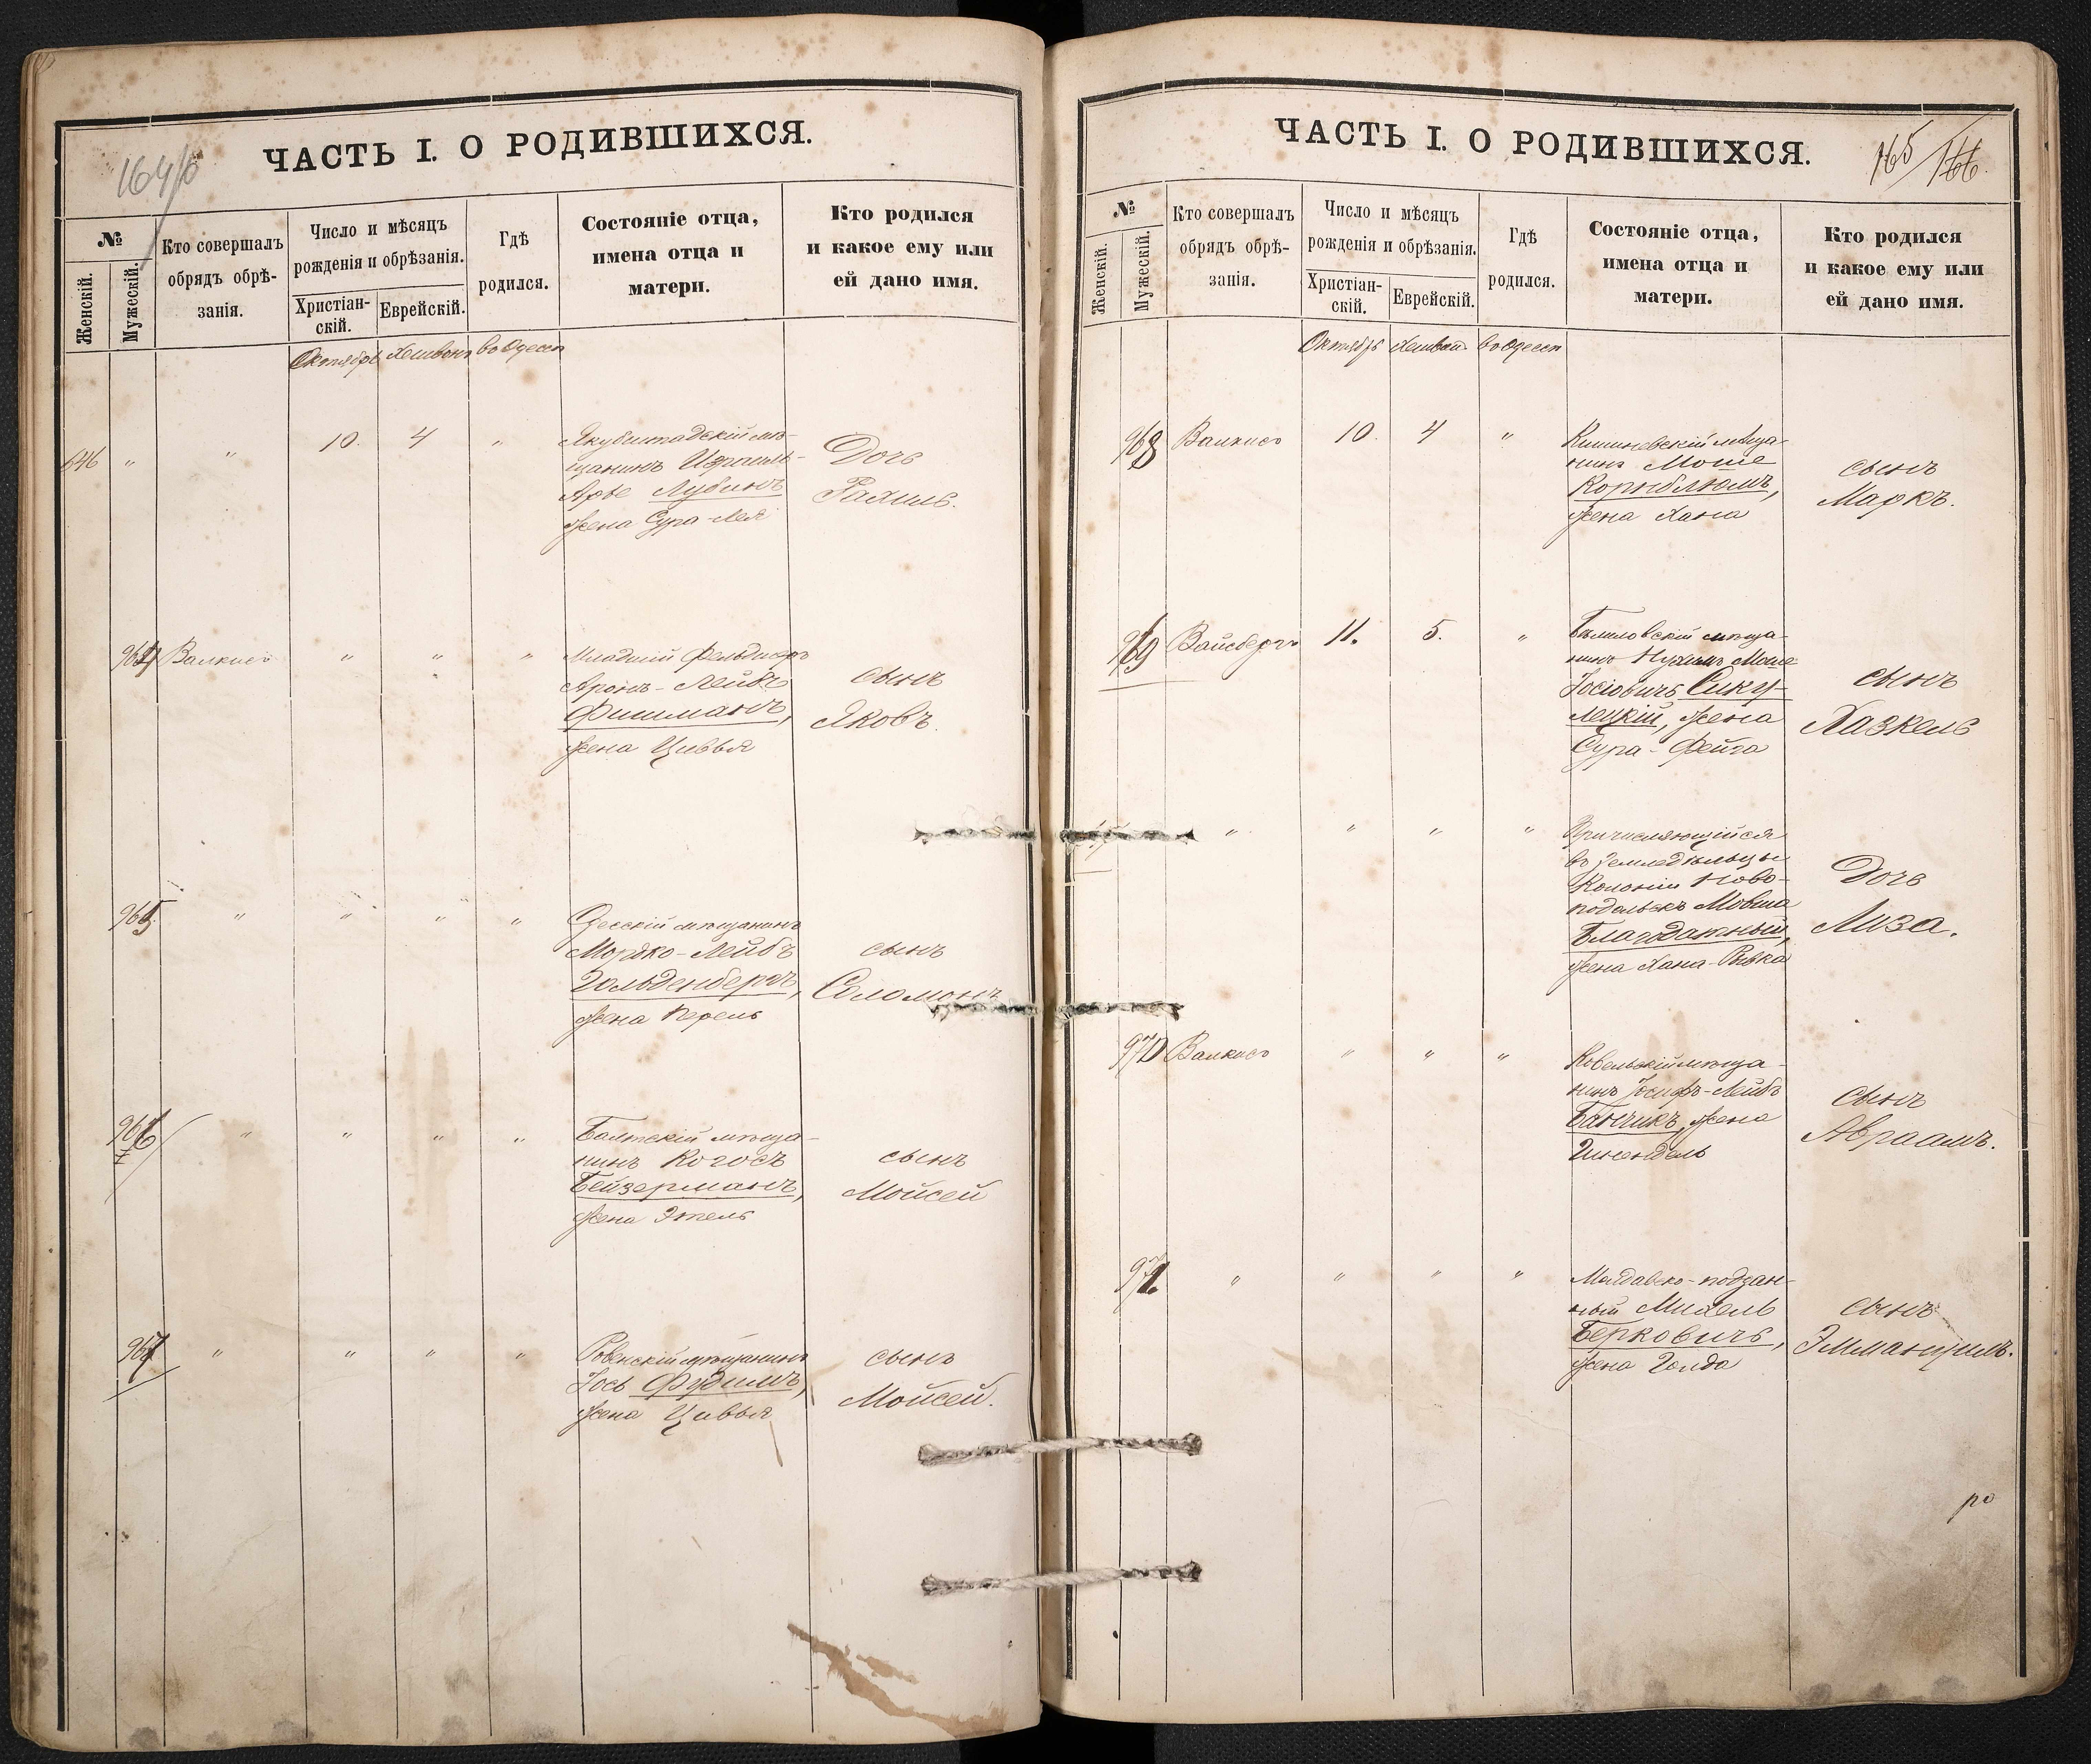 ЧАСТЬ I. О РОДИВШИХСЯ.
№
Женскій.
Мужескій.
Кто совершалъ
обрядъ обрѣ-
занія.
Число и мѣсяцъ
рожденія и обрѣзанія.
Христіан-
скій.
Еврейскій.
Гдѣ
родился.
Состояніе отца,
имена отца и
матери.
Кто родился
и какое ему или
ей дано имя.
Октябрь Хешвонъ во Одессѣ
646 " " 10. 4 "
Якубштадскій мѣ-
щанинъ Израиль-
Арье Лубинъ
жена Сура-Лея
Дочь
Рахиль.
964 Валкисъ " " "
Младшій Фельдшеръ
Аронъ-Лейбъ
Фишманъ,
жена Цивья
сынъ
Яковъ.
965 " " " "
Одесскій мѣщанинъ
Мордко-Лейбъ
Гольденбергъ,
жена Перель
сынъ
Соломонъ
966 " " " "
Балтскій мѣща-
нинъ Когосъ
Бейзерманъ,
жена Этель
сынъ
Мойсей
967 " " " "
Ровенскій мѣщанинъ
Іось Фудимъ,
жена Цивья
сынъ
Мойсей.
ЧАСТЬ I. О РОДИВШИХСЯ.
165/166.
№
Женскій.
Мужескій.
Кто совершалъ
обрядъ обрѣ-
занія.
Число и мѣсяцъ
рожденія и обрѣзанія.
Христіан-
скій.
Еврейскій.
Гдѣ
родился.
Состояніе отца,
имена отца и
матери.
Кто родился
и какое ему или
ей дано имя.
Октябрь Хешвон. во Одессѣ
968 Валкисъ 10. 4 "
Кишиневскій мѣща-
нинъ Моше
Корнблюмъ,
жена Хана
сынъ
Маркъ.
969 Вайсбергъ 11. 5. "
мѣща-
нинъ Нухимъ Моше
Іосіовичъ Сику-
лецкій, жена
Сура-Фейга
сынъ
Хазкель
" " " "
Причисляющійся
въ земледѣльцы
Колоніи Ново-
подольскъ Мовша
Благодатный,
жена Хана-Ривка
Дочь
Лиза.
970 Валкисъ " " "
Ковельскій мѣща-
нинъ Іосифъ-Лейбъ
Банчикъ, жена
Гинендель
сынъ
Авраамъ.
971. " " " "
Молдавско-поддан-
ный Михель
Берковичъ,
жена Голда
сынъ
Эммануилъ.
ро